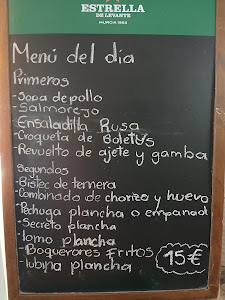 ESTRELLA
DE LEVANTE
MURCIA 1963
Menú del día
Primeros
-Sopa de pollo
-Salmorejo
-Ensaladilla Rusa
-Croqueta de Boletus
-Revuelto de ajete y gamba
Segundos
-Bistec de ternera
-Combinado de chorizo y huevo
-Pechuga plancha o empanad
-Secreto plancha
-lomo plancha
-Boquerones Fritos
-lubina plancha
15€